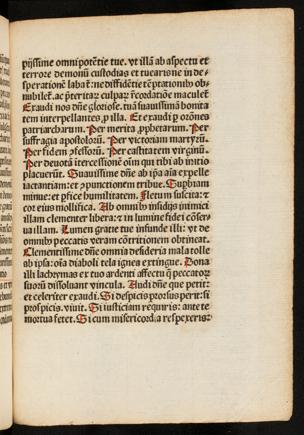 pijssime omnipotētie tue. vt illā ab aspectu et
terrore demonū custodias et tuearis ne in de-
sperationē labat: ne diffidētie tēptationib⁹ ob-
nubilet. ac p̄teritaꝝ culpaꝝ recordatiōe maculet
Exaudi nos dn̄e gloriose. tuā suauissimā bonita
tem interpellantes ꝓ illa. Et exaudi ꝑ orōnes
patriarcharum. Per merita ꝓphetarum. Per
suffragia apostolorū. Per victoriam martyrū.
Per fidem ꝯfessorū. Per castitatem virginū.
Per deuotā itercessionē oīm qui tibi ab initio
placuerūt. Suauissime dn̄e ab ip̄a aīa expelle
iactantiam: et ꝯpunctionem tribue. Supbiam
minue: et ꝑfice humilitatem. Fletum suscita: et
cor eius mollifica. Ab omnib⁹ insidijs inimici
illam clementer libera: et in lumine fidei cōser
ua illam. Lumen gratie tue infunde illi: vt de
omnib⁹ peccatis veram cōtritionem obtineat.
Clementissime dn̄e omnia desideria mala tolle
ab ipsa: oīa diaboli tela ignea extingue. Dona
illi lachrymas ex tuo ardenti affectu q̄ peccatoꝝ
suorū dissoluant vincula. Audi dn̄e que petit:
et celeriter exaudi. Si despicis prorsus perit: si
prospicis. viuit. Si iusticiam requiris: ante te
mortua fetet. Si cum misericordia respexeris: